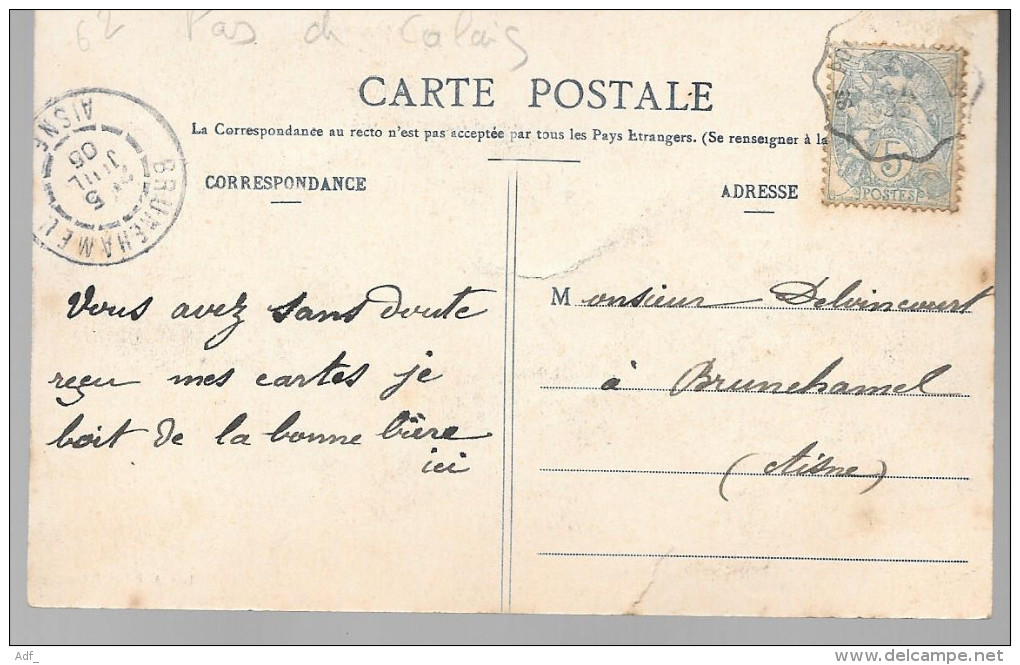 62 Pas de Calais
CARTE POSTALE
La Correspondance au recto n'est pas acceptée par tous les Pays Etrangers. (Se renseigner à la
CORRESPONDANCE
ADRESSE
BRUNEHAMEL
AISNE
5
JUIL
05
5
POSTES
Vous avez sans doute
reçu mes cartes je
boit de la bonne bière
ici
Monsieur Delvincourt
à Brunehamel
(Aisne)
Adf_
delcampe.net